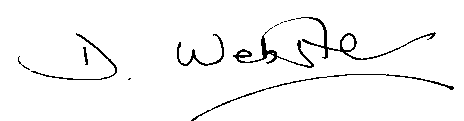 D. Webster